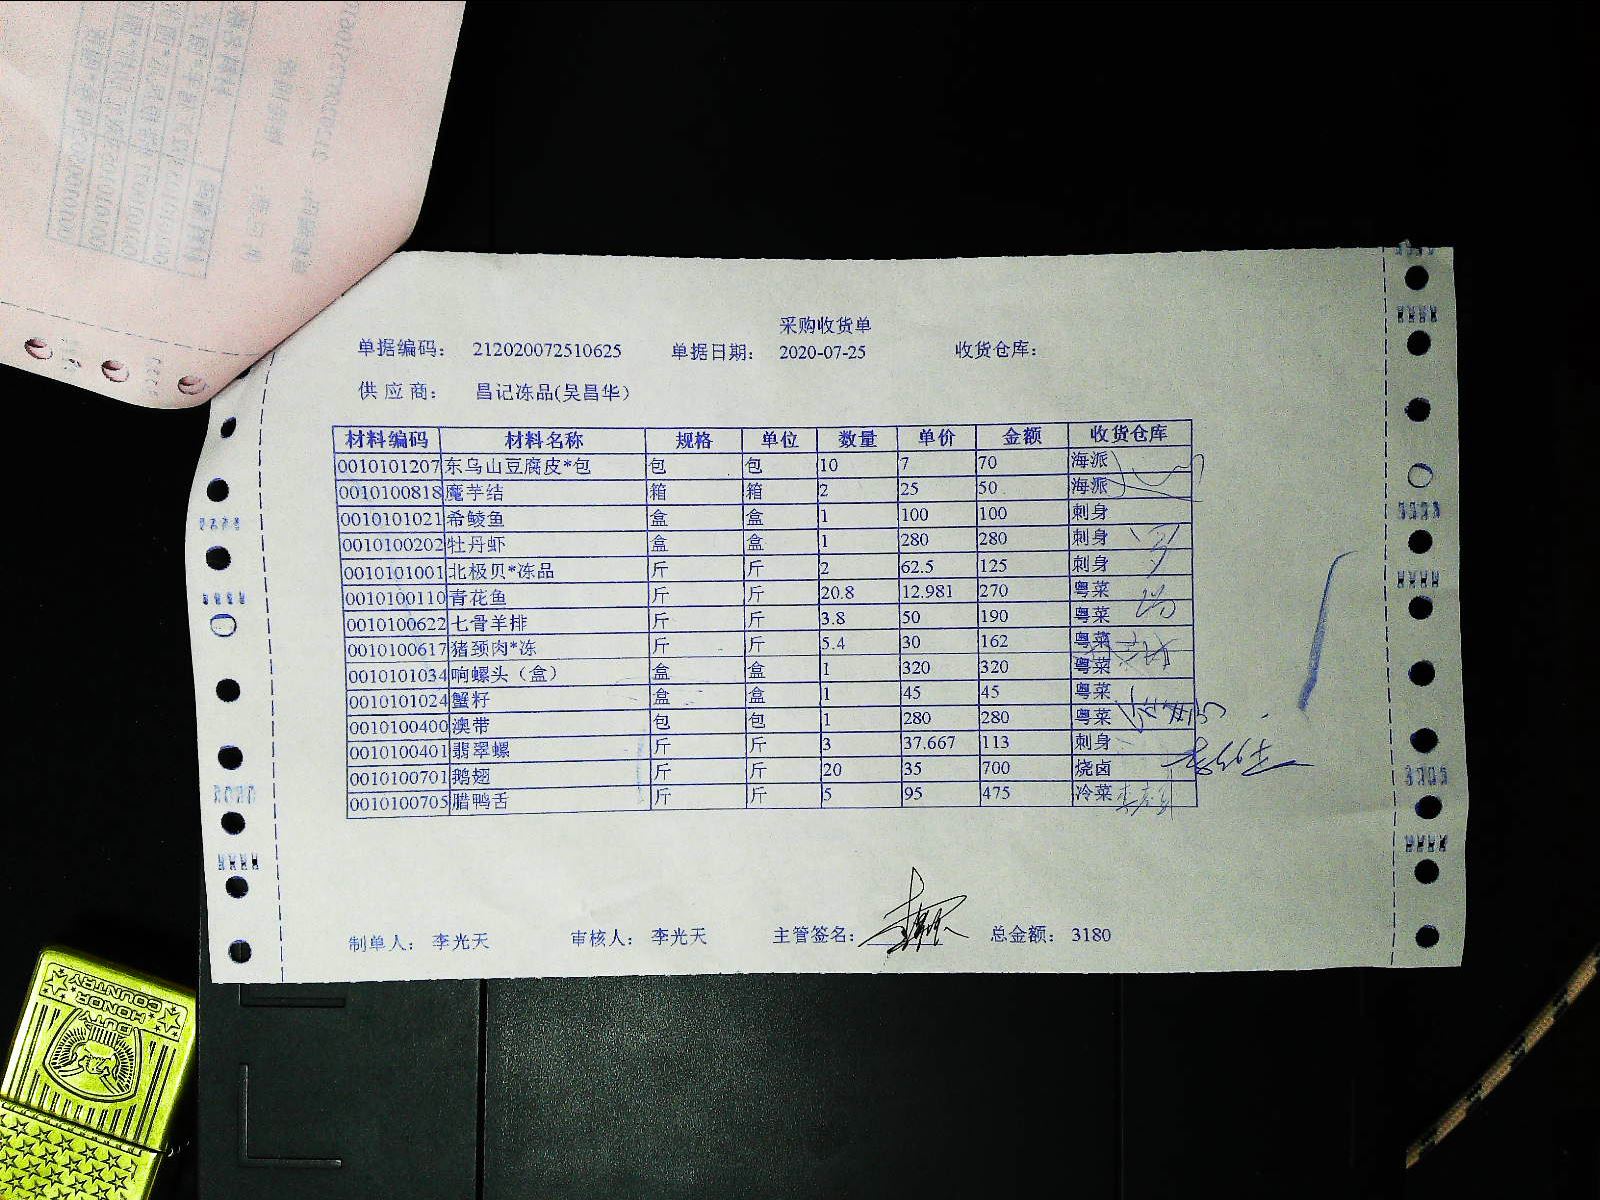 采购收货单
单据编码： 212020072510625 单据日期： 2020-07-25 收货仓库：
供 应 商： 昌记冻品(吴昌华)
材料编码 材料名称 规格 单位 数量 单价 金额 收货仓库
0010101207 东乌山豆腐皮*包 包 包 10 7 70 海派
0010100818 魔芋结 箱 箱 2 25 50 海派
0010101021 希鲮鱼 盒 盒 1 100 100 刺身
0010100202 牡丹虾 盒 盒 1 280 280 刺身
0010101001 北极贝*冻品 斤 斤 2 62.5 125 刺身
0010100110 青花鱼 斤 斤 20.8 12.981 270 粤菜
0010100622 七骨羊排 斤 斤 3.8 50 190 粤菜
0010100617 猪颈肉*冻 斤 斤 5.4 30 162 粤菜
0010101034 响螺头（盒） 盒 盒 1 320 320 粤菜
0010101024 蟹籽 盒 盒 1 45 45 粤菜
0010100400 澳带 包 包 1 280 280 粤菜
0010100401 翡翠螺 斤 斤 3 37.667 113 刺身
0010100701 鹅翅 斤 斤 20 35 700 烧卤
0010100705 腊鸭舌 斤 斤 5 95 475 冷菜
制单人： 李光天 审核人： 李光天 主管签名： 总金额： 3180
DUTY
HONOR
COUNTRY